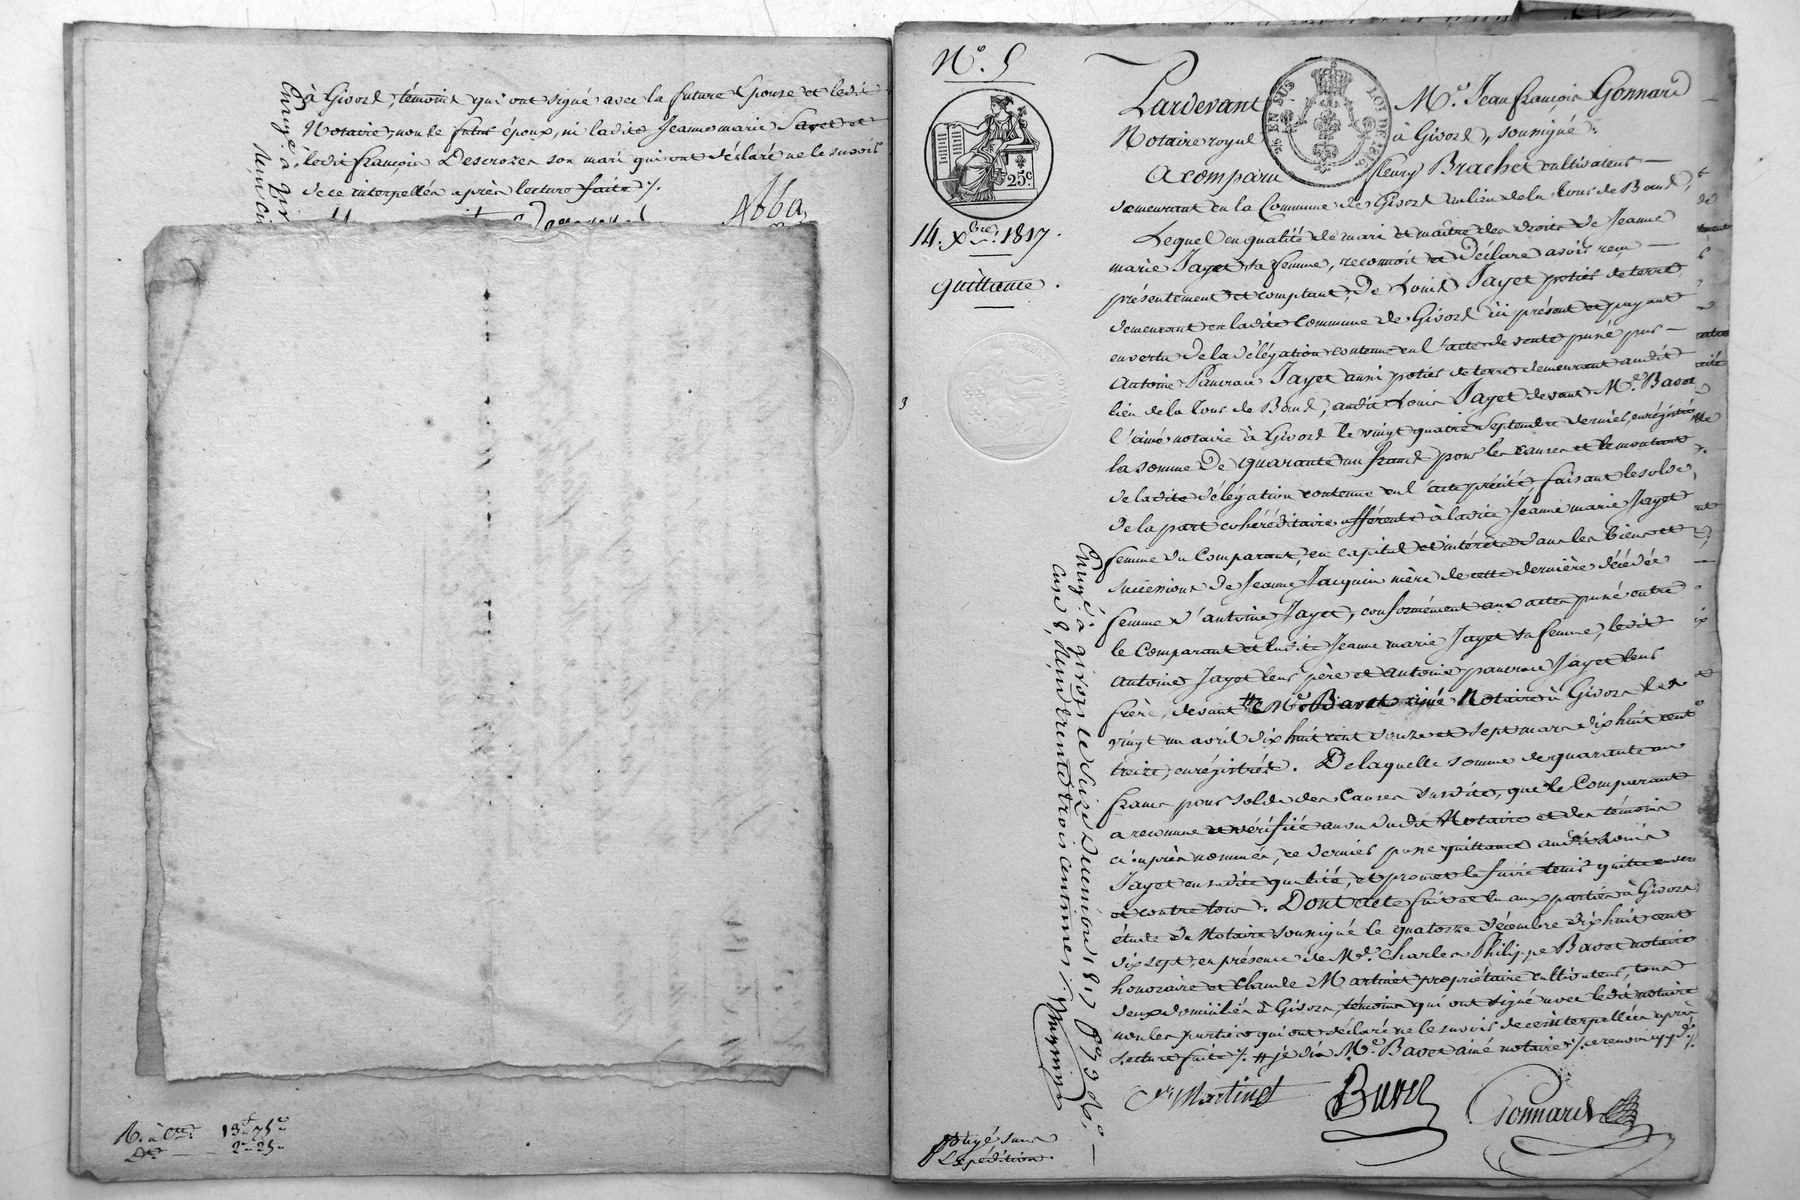 à Givors, témoins qui ont signé avec la future Epouse et ledit
Notaire, non le futur époux, ni ladite Jeanne marie Jayet et
ledit françois Descrozes son mari qui ont déclaré ne le savoir
de ce interpellés après lecture faite /.
Enrgé à Giv
R. à Cre. 13f. 75c.
2. 25.
No. 5
25c.
14. Xbre. 1817.
quittance.
EN SUS
LOI DE 1816
Pardevant Me. Jean françois Gonnard
Notaire royal à Givors, soussigné.
A comparu fleury Brachet cultivateur
demeurant en la Commune de Givors au lieu de la tour de Band,
Lequel en qualité de mari et maître des droits de Jeanne
marie Jayet sa femme, reconnoit et déclare avoir reçu
présentement et comptant, de Louis Jayet potier de terre
demeurant en ladite Commune de Givors ici présent et payant
en vertu de la délégation contenue en l'acte de vente passé par
Antoine Pancrace Jayet aussi potier de terre demeurant audit
lieu de la tour de Band, audit Louis Jayet devant Me. Bavet
l'aîné notaire à Givors le vingt quatre Septembre dernier, enrégistré
la somme De quarante un francs pour les causes et le montant
de ladite délégation contenue en l'acte précité faisant le solde
de la part cohéréditaire afférente à ladite Jeanne marie Jayet
femme du Comparant, en capital et intérêts dans les biens et
successions de Jeanne Jacquin mère de cette dernière décédée
femme d'antoine Jayet, conformément aux actes passé entre
le Comparant et ladite Jeanne marie Jayet sa femme, ledit
antoine Jayet leur père et antoine pancrace Jayet leur
frère, devant # Me Bavet aîné Notaire à Givors les
vingt un avril dix huit cent douze et sept mars dix huit cent
treize, enrégistrés. De laquelle somme de quarante un
francs pour solde des Causes susdites, que le Comparant
a reconnue et vérifiée au vu dudit Notaire et des témoins
ci après nommés, ce dernier passe quittance audit Louis
Jayet en sadite qualité, et promet le faire tenir quitte envers
et contre tous. Dont acte fait et lu aux parties à Givors
étude du Notaire soussigné le quatorze décembre dix huit cent
dix sept, en présence de Me. Charles Philippe Bavet notaire
honoraire et Claude Martinet propriétaire cultivateur, tous
deux domiciliés à Givors, témoins qui ont signé avec ledit notaire
non les parties qui ont déclaré ne le savoir de ce interpellées après
Lecture faite /. # je dis Me. Bavet aîné notaire /.
Cde Martinet Bavet Gonnard
Enrgé. à givors le Seize Décembre 1817
Reçu trente trois centimes /.
Expédition.